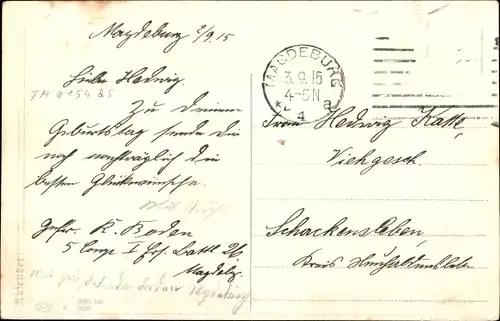 Magdeburg 2/9.15
Liebe Hedwig.
Zu deinem
Geburtstag sende dir
noch nachträglich die
besten Glückwünsche.
Gefr. K. Boden
5 Comp I Ers. Batl. 26
Magdebg.
Absender:
MAGDEBURG
3.9.15
4-5N
* 4 a
Frau Hedwig
Viehgesch.
Schackensleben,
Kreis Neuhaldensleben